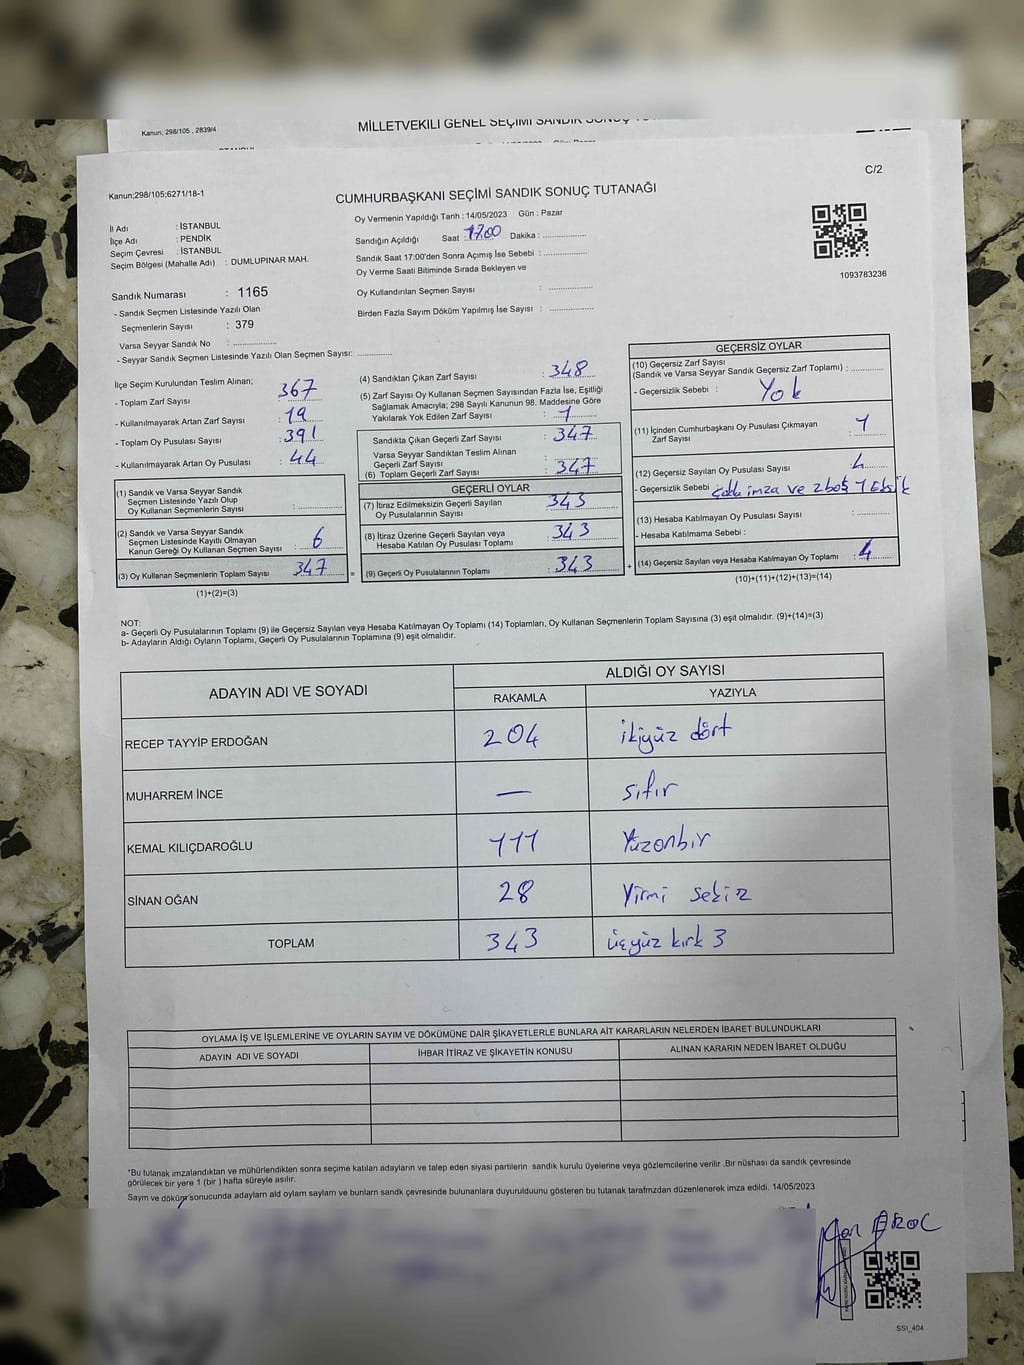 Kanun; 298/105 , 2839/4
MİLLETVEKİLİ GENEL SEÇİMİ SANDIK SONUÇ
C/2
Kanun:298/105;6271/18-1
CUMHURBAŞKANI SEÇİMİ SANDIK SONUÇ TUTANAĞI
İl Adı : İSTANBUL
İlçe Adı : PENDİK
Seçim Çevresi : İSTANBUL
Seçim Bölgesi (Mahalle Adı) : DUMLUPINAR MAH.
Oy Vermenin Yapıldığı Tarih : 14/05/2023 Gün : Pazar
Sandığın Açıldığı Saat 17.00 Dakika : ................
Sandık Saat 17:00'den Sonra Açımış İse Sebebi : ................
Oy Verme Saati Bitiminde Sırada Bekleyen ve
Oy Kullandırılan Seçmen Sayısı : ................
Birden Fazla Sayım Döküm Yapılmış İse Sayısı : ................
1093783236
Sandık Numarası : 1165
- Sandık Seçmen Listesinde Yazılı Olan
Seçmenlerin Sayısı : 379
Varsa Seyyar Sandık No : ................
- Seyyar Sandık Seçmen Listesinde Yazılı Olan Seçmen Sayısı: ............
İlçe Seçim Kurulundan Teslim Alınan;
- Toplam Zarf Sayısı : 367
- Kullanılmayarak Artan Zarf Sayısı : 19
- Toplam Oy Pusulası Sayısı : 391
- Kullanılmayarak Artan Oy Pusulası : 44
(1) Sandık ve Varsa Seyyar Sandık
Seçmen Listesinde Yazılı Olup
Oy Kullanan Seçmenlerin Sayısı : ............
(2) Sandık ve Varsa Seyyar Sandık
Seçmen Listesinde Kayıtlı Olmayan
Kanun Gereği Oy Kullanan Seçmen Sayısı : 6
(3) Oy Kullanan Seçmenlerin Toplam Sayısı : 347
(1)+(2)=(3)
(4) Sandıktan Çıkan Zarf Sayısı : 348
(5) Zarf Sayısı Oy Kullanan Seçmen Sayısından Fazla İse, Eşitliği
Sağlamak Amacıyla; 298 Sayılı Kanunun 98. Maddesine Göre
Yakılarak Yok Edilen Zarf Sayısı : 1
Sandıkta Çıkan Geçerli Zarf Sayısı : 347
Varsa Seyyar Sandıktan Teslim Alınan
Geçerli Zarf Sayısı :
(6) Toplam Geçerli Zarf Sayısı : 347
GEÇERLİ OYLAR
(7) İtiraz Edilmeksizin Geçerli Sayılan
Oy Pusulalarının Sayısı : 343
(8) İtiraz Üzerine Geçerli Sayılan veya
Hesaba Katılan Oy Pusulası Toplamı : 343
= (9) Geçerli Oy Pusulalarının Toplamı : 343
GEÇERSİZ OYLAR
(10) Geçersiz Zarf Sayısı
(Sandık ve Varsa Seyyar Sandık Geçersiz Zarf Toplamı) : ............
- Geçersizlik Sebebi : Yok
(11) İçinden Cumhurbaşkanı Oy Pusulası Çıkmayan
Zarf Sayısı : 1
(12) Geçersiz Sayılan Oy Pusulası Sayısı : 4
- Geçersizlik Sebebi : imza ve 2boş 1 Eksik
(13) Hesaba Katılmayan Oy Pusulası Sayısı : ............
- Hesaba Katılmama Sebebi :
+ (14) Geçersiz Sayılan veya Hesaba Katılmayan Oy Toplamı : 4
(10)+(11)+(12)+(13)=(14)
NOT:
a- Geçerli Oy Pusulalarının Toplamı (9) ile Geçersiz Sayılan veya Hesaba Katılmayan Oy Toplamı (14) Toplamları, Oy Kullanan Seçmenlerin Toplam Sayısına (3) eşit olmalıdır. (9)+(14)=(3)
b- Adayların Aldığı Oyların Toplamı, Geçerli Oy Pusulalarının Toplamına (9) eşit olmalıdır.
ADAYIN ADI VE SOYADI ALDIĞI OY SAYISI
RAKAMLA YAZIYLA
RECEP TAYYİP ERDOĞAN 204 ikiyüz dört
MUHARREM İNCE — sıfır
KEMAL KILIÇDAROĞLU 111 Yüzonbir
SİNAN OĞAN 28 Yirmi sekiz
TOPLAM 343 üçyüz kırk 3
OYLAMA İŞ VE İŞLEMLERİNE VE OYLARIN SAYIM VE DÖKÜMÜNE DAİR ŞİKAYETLERLE BUNLARA AİT KARARLARIN NELERDEN İBARET BULUNDUKLARI
ADAYIN ADI VE SOYADI İHBAR İTİRAZ VE ŞİKAYETİN KONUSU ALINAN KARARIN NEDEN İBARET OLDUĞU
*Bu tutanak imzalandıktan ve mühürlendikten sonra seçime katılan adayların ve talep eden siyasi partilerin sandık kurulu üyelerine veya gözlemcilerine verilir .Bir nüshası da sandık çevresinde
görülecek bir yere 1 (bir ) hafta süreyle asılır.
Sayım ve döküm sonucunda adayların ald oyların saylarn ve bunların sandk çevresinde bulunanlara duyurulduunu gösteren bu tutanak tarafmzdan düzenlenerek imza edildi. 14/05/2023
SSI_404